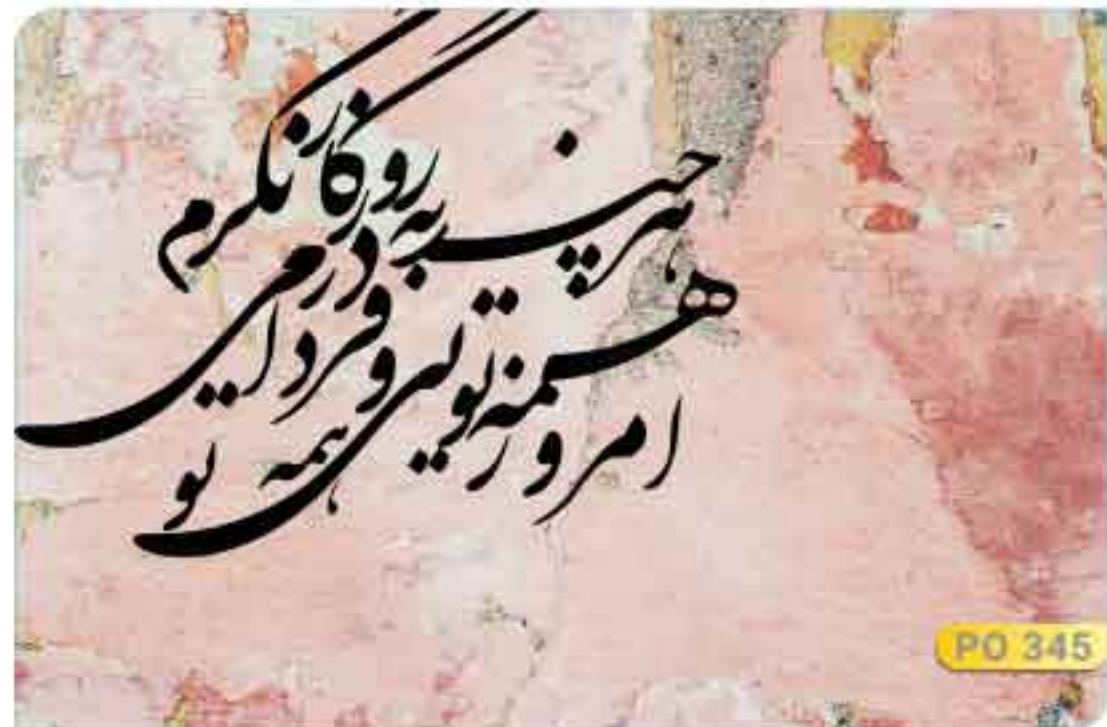 هر چند به روزگار در می نگرم
امروز همه تویی و فردا همه تو
PO 345